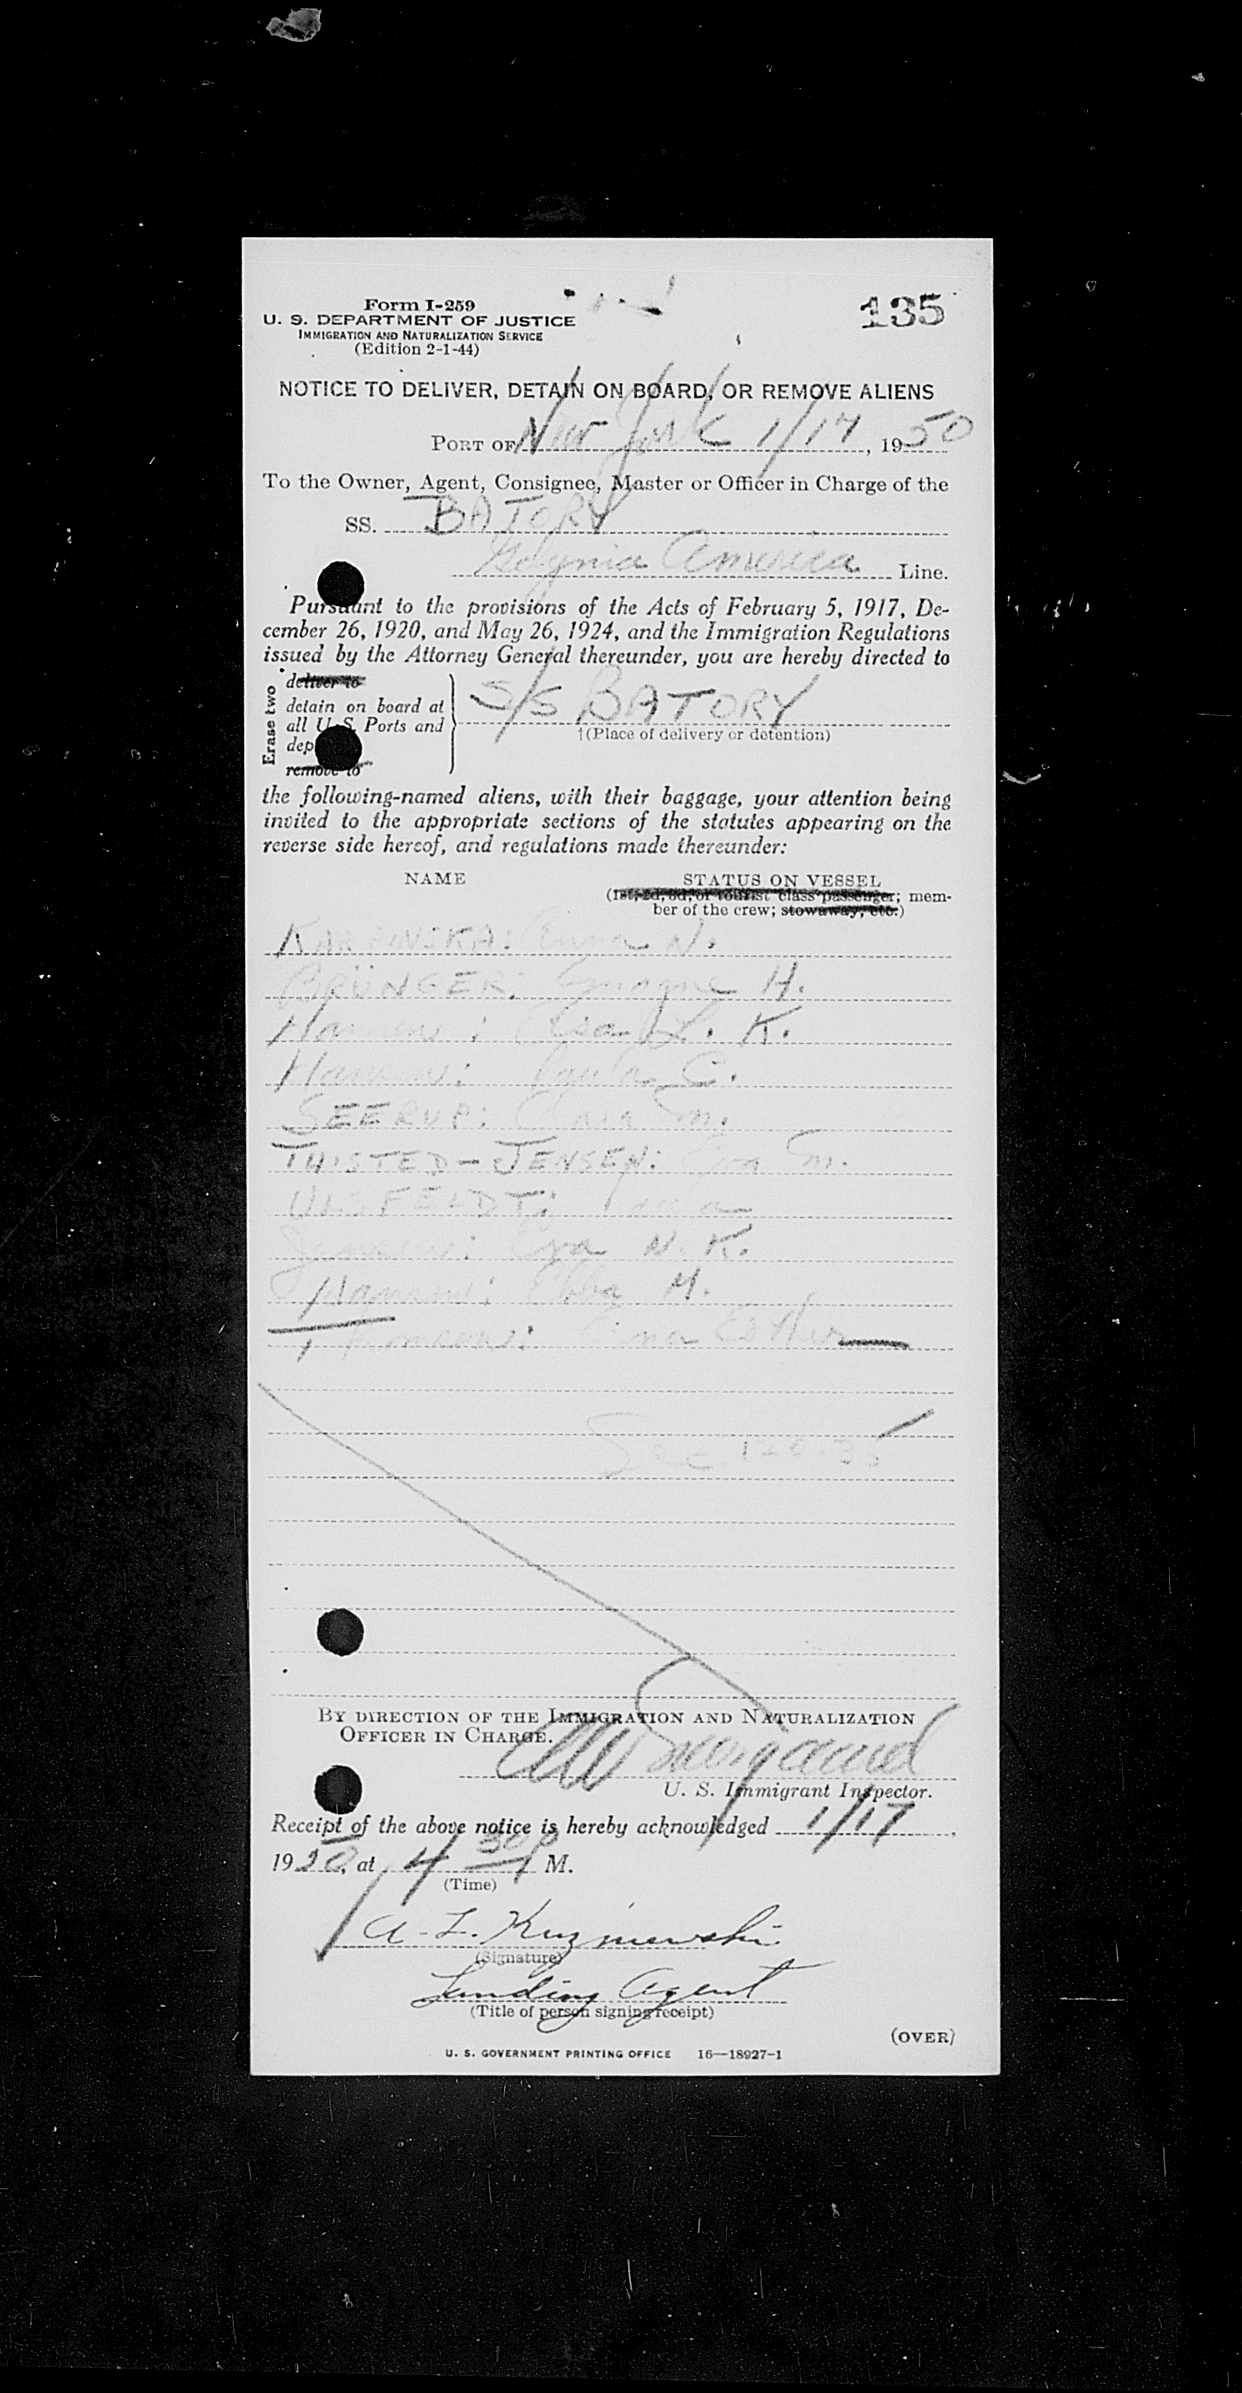 Form I-259
U. S. DEPARTMENT OF JUSTICE
IMMIGRATION AND NATURALIZATION SERVICE
(Edition 2-1-44)
135
NOTICE TO DELIVER, DETAIN ON BOARD, OR REMOVE ALIENS
PORT OF New York 1/17, 1950
To the Owner, Agent, Consignee, Master or Officer in Charge of the
SS. BATORY
Gdynia America Line.
Pursuant to the provisions of the Acts of February 5, 1917, De-
cember 26, 1920, and May 26, 1924, and the Immigration Regulations
issued by the Attorney General thereunder, you are hereby directed to
Erase two
deliver to
detain on board at
all U.S. Ports and
dep
remove to
S/S BATORY
†(Place of delivery or detention)
the following-named aliens, with their baggage, your attention being
invited to the appropriate sections of the statutes appearing on the
reverse side hereof, and regulations made thereunder:
NAME
STATUS ON VESSEL
(1st, 2d, 3d, or tourist class passenger; mem-
ber of the crew; stowaway, etc.)
KARPINSKA: Anna N.
BRÜNGER: H.
Hansen: L. K.
Hansen: Paula C.
SEERUP: Clara M.
THISTED-JENSEN: M.
Jensen: Eva N. K.
Hansen: Ebba M.
Esther
Sec 120.35
BY DIRECTION OF THE IMMIGRATION AND NATURALIZATION
OFFICER IN CHARGE.
U. S. Immigrant Inspector.
Receipt of the above notice is hereby acknowledged 1/17,
1950, at 4 30 P M.
(Time)
A. L. Kuzniewski
(Signature)
Landing Agent
(Title of person signing receipt)
(OVER)
U. S. GOVERNMENT PRINTING OFFICE 16—18927-1